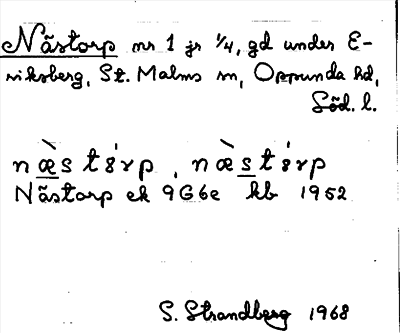 Nästorp nr 1 jr 1/4, gd under E-
riksberg, St. Malms sn, Oppunda hd,
Söd. l.
Nästorp ek 9G6e kb 1952
S. Strandberg 1968